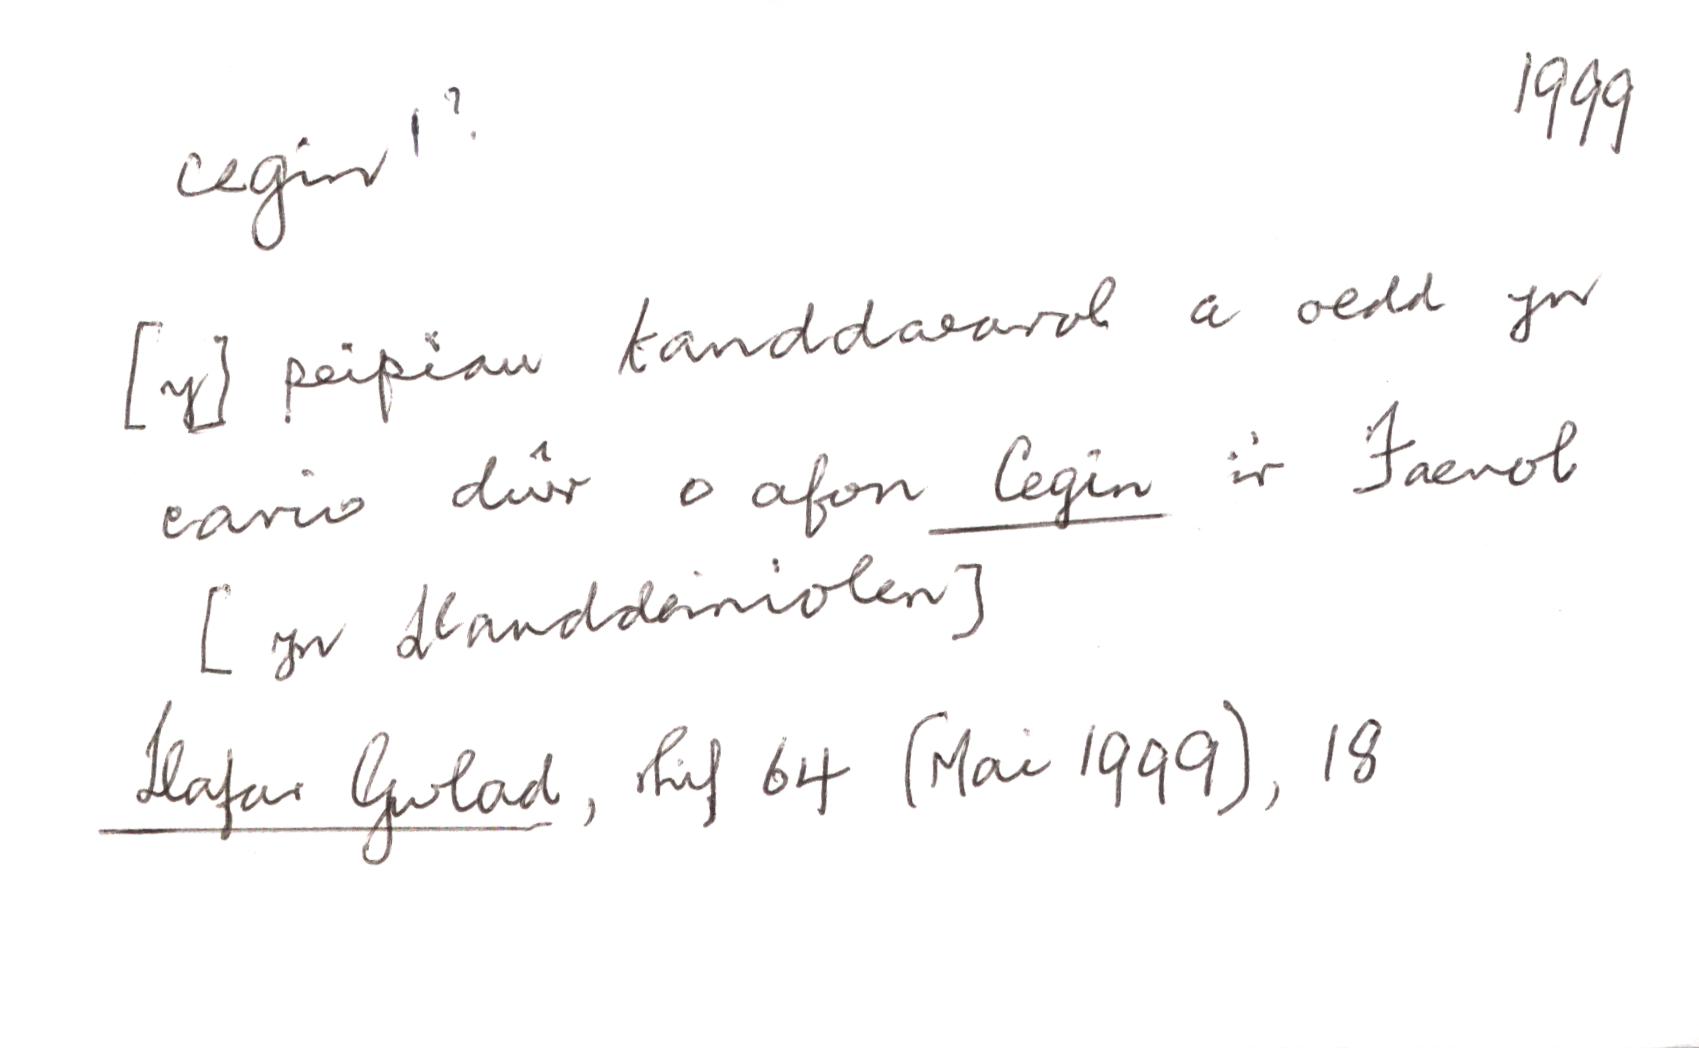 cegin 1?
1999
[y] peipiau tanddaearol a oedd yn
cario dŵr o afon Cegin i'r Faenol
[yn Llanddeiniolen]
Llafar Gwlad, rhif 64 (Mai 1999), 18